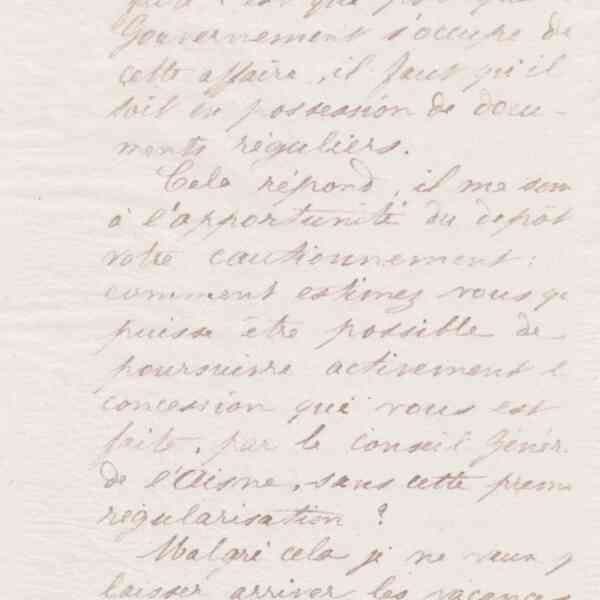 Gouvernement s'occupe de
cette affaire, il faut qu'il
soit en possession de docu-
ments réguliers.
Cela répond, il me sem
à l'opportunité du dépôt
votre cautionnement :
comment estimez vous qu
puisse être possible de
poursuivre activement l
concession qui vous est
faite, par le Conseil Génér
de l'Aisne, sans cette prem
régularisation ?
Malgré cela je ne veux p
laisser arriver les vacances